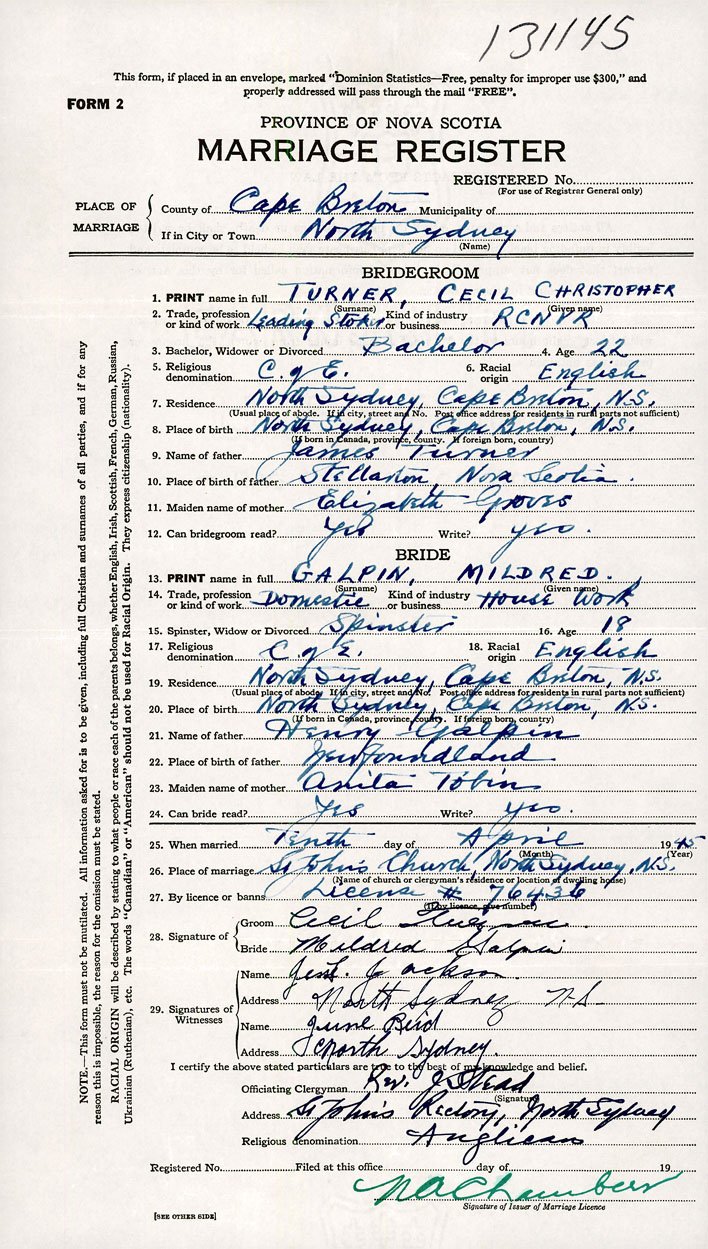 131145
This form, if placed in an envelope, marked “Dominion Statistics—Free, penalty for improper use $300,” and
properly addressed will pass through the mail “FREE”.
FORM 2
PROVINCE OF NOVA SCOTIA
MARRIAGE REGISTER
REGISTERED No.
(For use of Registrar General only)
PLACE OF MARRIAGE
County of Cape Breton Municipality of
If in City or Town North Sydney
(Name)
BRIDEGROOM
1. PRINT name in full TURNER, CECIL CHRISTOPHER
(Surname) (Given name)
2. Trade, profession or kind of work Leading Stoker Kind of industry or business RCNVR
3. Bachelor, Widower or Divorced Bachelor 4. Age 22
5. Religious denomination C. of E. 6. Racial origin English
7. Residence North Sydney, Cape Breton, N.S.
(Usual place of abode. If in city, street and No. Post office address for residents in rural parts not sufficient)
8. Place of birth North Sydney, Cape Breton, N.S.
(If born in Canada, province, county. If foreign born, country)
9. Name of father James Turner
10. Place of birth of father Stellarton, Nova Scotia.
11. Maiden name of mother Elizabeth Groves
12. Can bridegroom read? Yes Write? yes.
BRIDE
13. PRINT name in full GALPIN, MILDRED.
(Surname) (Given name)
14. Trade, profession or kind of work Domestic Kind of industry or business House Work
15. Spinster, Widow or Divorced Spinster 16. Age 18
17. Religious denomination C. of E. 18. Racial origin English
19. Residence North Sydney, Cape Breton, N.S.
(Usual place of abode. If in city, street and No. Post office address for residents in rural parts not sufficient)
20. Place of birth North Sydney, Cape Breton, N.S.
(If born in Canada, province, county. If foreign born, country)
21. Name of father Henry Galpin
22. Place of birth of father Newfoundland
23. Maiden name of mother Anita Tobin
24. Can bride read? Yes Write? yes.
25. When married Tenth day of April 1945
(Month) (Year)
26. Place of marriage St John's Church, North Sydney, N.S.
(Name of church or clergyman's residence or location of dwelling house)
27. By licence or banns License # 76436
(If by licence, give number)
28. Signature of
Groom Cecil Turner
Bride Mildred Galpin
29. Signatures of Witnesses
Name Jackson
Address North Sydney N-S-
Name June Reid
Address North Sydney.
I certify the above stated particulars are true to the best of my knowledge and belief.
Officiating Clergyman Rev. J Stead
(Signature)
Address St John's Rectory, North Sydney
Religious denomination Anglican
Registered No. Filed at this office day of 19
Chambers
Signature of Issuer of Marriage Licence
[SEE OTHER SIDE]
NOTE.—This form must not be mutilated. All information asked for is to be given, including full Christian and surnames of all parties, and if for any
reason this is impossible, the reason for the omission must be stated.
RACIAL ORIGIN will be described by stating to what people or race each of the parents belongs, whether English, Irish, Scottish, French, German, Russian,
Ukrainian (Ruthenian), etc. The words “Canadian” or “American” should not be used for Racial Origin. They express citizenship (nationality).